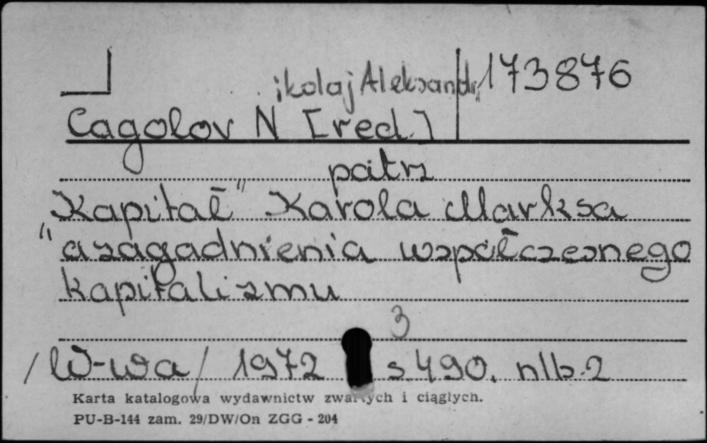 ikolaj Aleksandr 173876
Cagolov N [red.]
patrz
"Kapitał" Karola Marksa
a zagadnienia współczesnego
kapitalizmu
3
/W-wa/ 1972 s 490. nlb. 2
Karta katalogowa wydawnictw zwartych i ciągłych.
PU-B-144 zam. 29/DW/On ZGG - 204